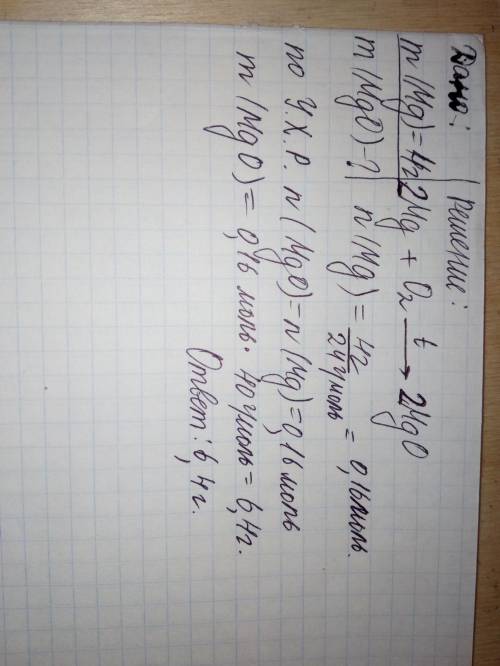 Дано: | Решение:
m(Mg)=4г | 2Mg + O₂ —t→ 2MgO
m(MgO)-? | n(Mg) = 4г/24г/моль = 0,16моль.
по У.Х.Р. n(MgO)=n(Mg)=0,16 моль
m(MgO)= 0,16 моль · 40г/моль = 6,4г.
Ответ: 6,4г.